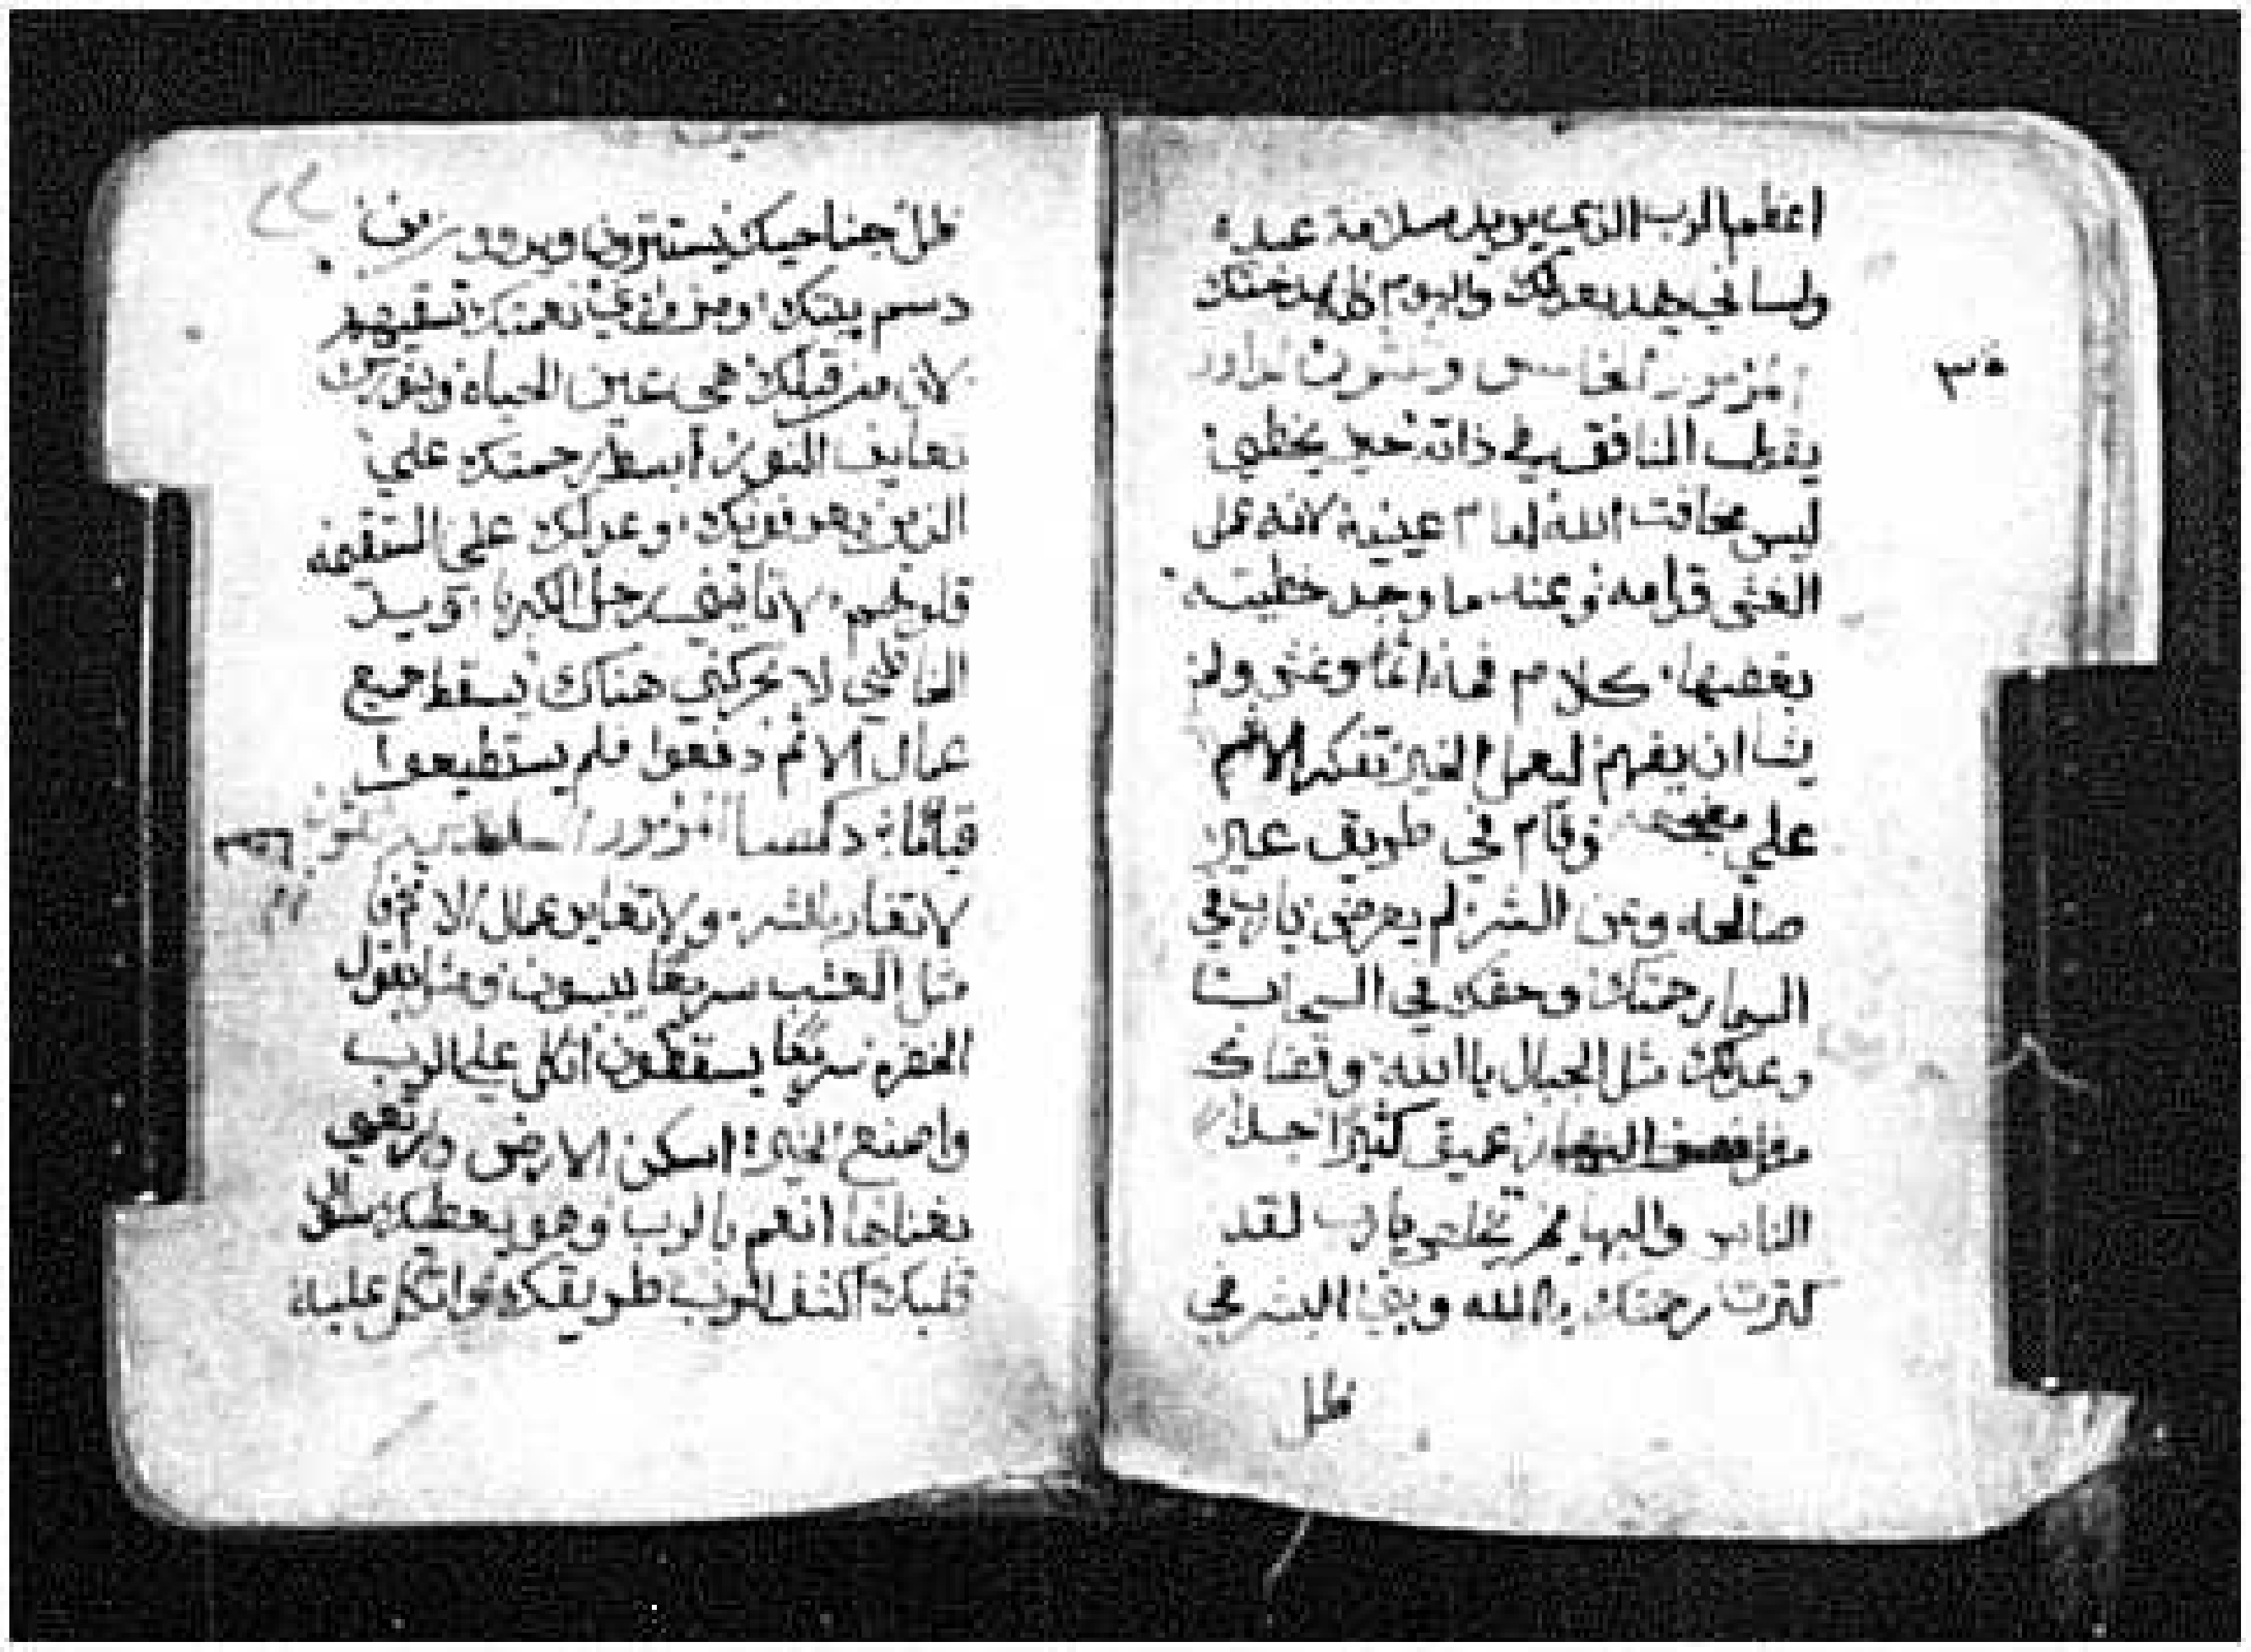 اعظم الرب الذي يريد سلامة عبده
ولساني يهذ بعدلك واليوم كله بمدحتك
٣٥
المزمور الخامس وثلثون لداود
المنافق في ذاته يخطي
ليس مخافت الله امام عينيه لانه عمل
الغش قدامه خطيته
كلام فمه اثما وغش ولم
يشا ان يفهم ليعمل الخير تفكر الاثم
علي مضجعه وقام في طريق غير
صالحه وعن الشر لم يعرض يارب في
السما رحمتك وحقك في السحاب
وعدلك مثل الجبال ياالله وقضاك
عميق كثيرا جدا
الناس والبهايم تخلص يارب لقد
كثرت رحمتك ياالله وبني البشر في
ظل
ظل جناحيك يستترون ويرون من
دسم بيتك ومن وادي نعمتك تسقيهم
لان من قبلك هي عين الحياة وبنورك
نعاين النور ابسط رحمتك علي
الذين يعرفونك وعدلك علي المستقيمه
قلوبهم لا تاتيني رجل الكبريا ويد
الخاطي لا تحركني هناك يسقط جميع
عمال الاثم دفعوا فلم يستطيعوا
قيامًا المزمور السادس وثلثون
لا تغار بالشر ولا تغاير عمال الاثم
مثل العشب سريعا ييبسون ومثل بقول
الخضره سريعا يسقطون اتكل علي الرب
واصنع الخير اسكن الارض وارتعي
بغناها انعم بالرب وهو يعطيك
قلبك اكشف للرب طريقك واتكل عليه